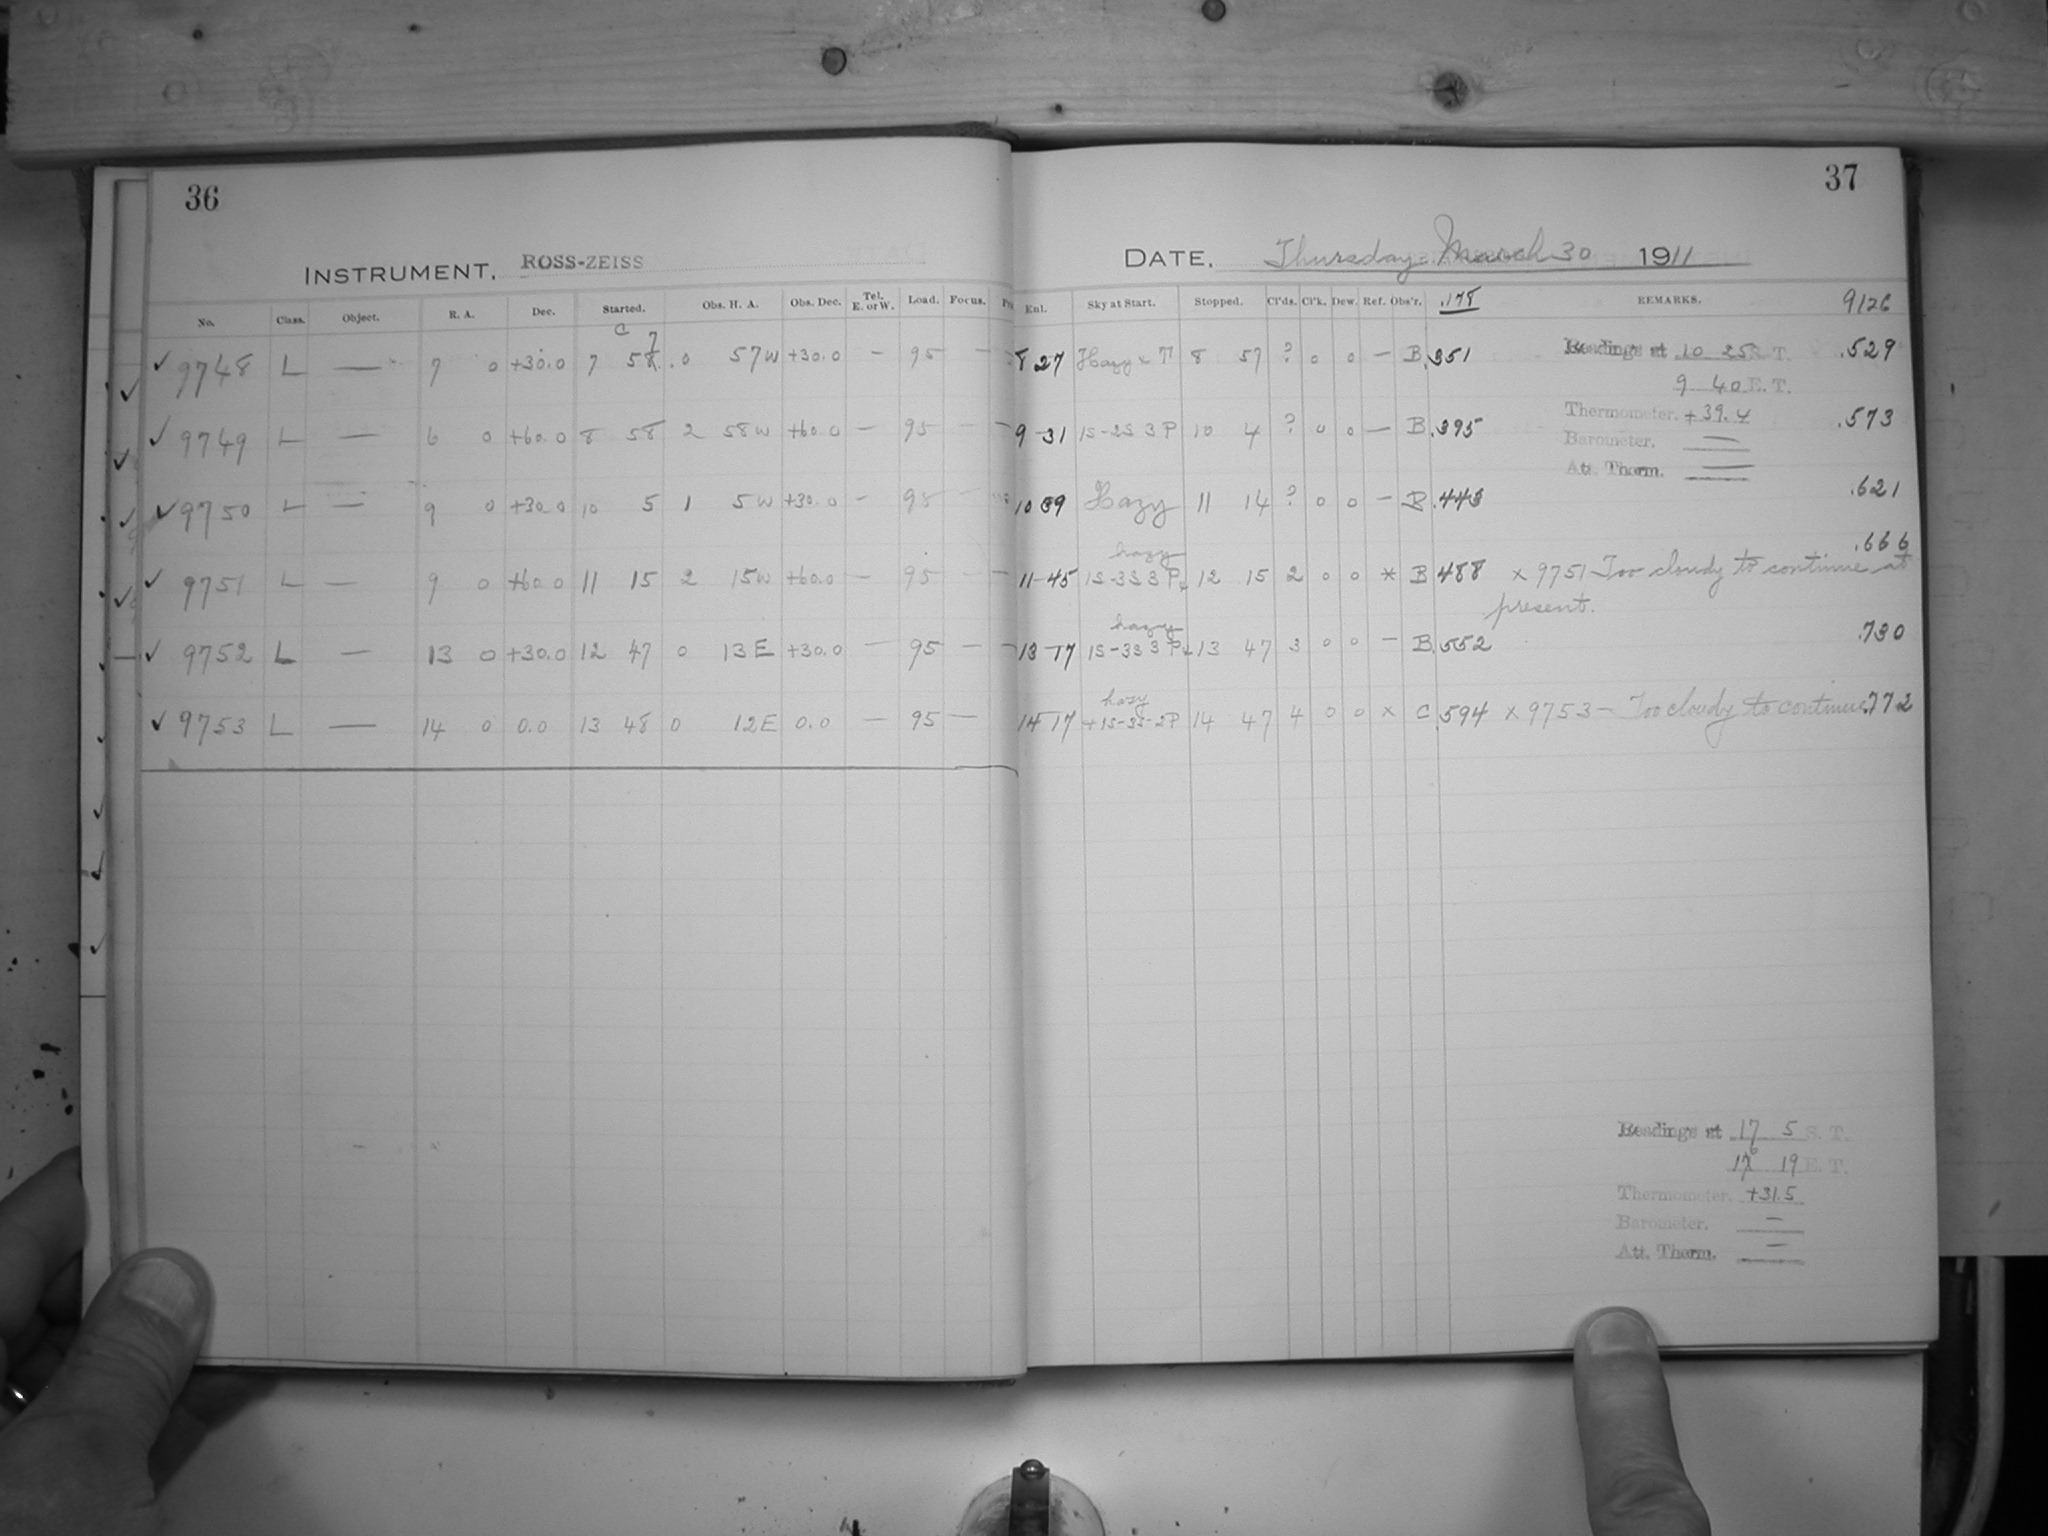 36
INSTRUMENT, ROSS-ZEISS
No. Class. Object. R. A. Dec. Started. Obs. H. A. Obs. Dec. Tel. E. or W. Load. Focus.
✓ 9748 L — 7 0 +30.0 7 57 0 57W +30.0 — 95 —
✓ 9749 L — 6 0 +60.0 8 58 2 58W +60.0 — 95 —
✓ 9750 L — 9 0 +30.0 10 5 1 5W +30.0 — 95 —
✓ 9751 L — 9 0 +60.0 11 15 2 15W +60.0 — 95 —
✓ 9752 L — 13 0 +30.0 12 47 0 13E +30.0 — 95 —
✓ 9753 L — 14 0 0.0 13 48 0 12E 0.0 — 95 —
37
DATE, Thursday March 30 1911
Enl. Sky at Start. Stopped. Cl'ds. Cl'k. Dew. Ref. Obs'r. .178 REMARKS. 9126
8 27 Hazy 8 57 ? 0 0 — B .351 .529
9-31 1S-2S 3P 10 4 ? 0 0 — B .395 .573
10 39 Hazy 11 14 ? 0 0 — B .443 .621
hazy
11-45 1S-3S 3P 12 15 2 0 0 * B 488 × 9751 Too cloudy to continue at .666
present.
hazy
13-17 1S-3S 3P 13 47 3 0 0 — B .552 .730
hazy
14-17 +1S-3S-2P 14 47 4 0 0 × C .594 × 9753 — Too cloudy to continue .772
Readings at 10 25 S. T.
9 40 E. T.
Thermometer. +39.4
Barometer. —
Att. Therm. —
Readings at 17 5 S. T.
16 19 E. T.
Thermometer. +31.5
Barometer. —
Att. Therm. —